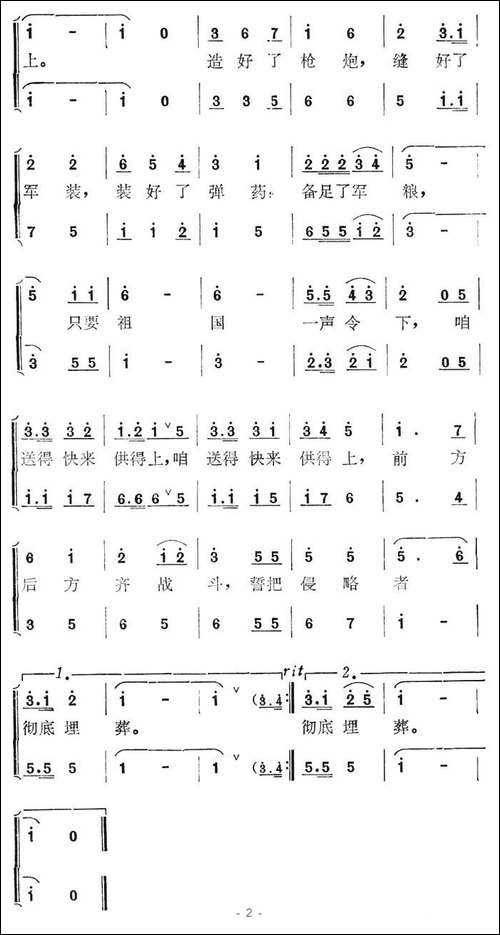 i - i 0 3 6 7 i 6 2 3.i
上。 造好了枪炮，缝好了
i - i 0 3 3 5 6 6 5 i.i
2 2 6 5 4 3 i 2 2 2 3 4 5 -
军装，装好了弹药；备足了军粮，
7 5 i i 2 i 5 6 5 5 i 2 3 -
5 i i 6 - 6 - 5.5 4 3 2 0 5
只要祖国一声令下，咱
3 5 5 i - 3 - 2.3 2 i 2 0 5
3.3 3 2 i.2 i ∨ 5 3.3 3 i 3 4 5 i . 7
送得快来供得上，咱送得快来供得上，前方
i.i i 7 6.6 6 ∨ 5 i.i i 5 i 7 6 5 . 4
6 i 2 i 2 3 5 5 5 5 5 . 6
后方齐战斗，誓把侵略者
3 5 6 5 6 5 5 6 7 i -
1. rit 2.
3.i 2 i - i ∨ (3.4 :‖ 3.i 2 5 i -
彻底埋葬。 彻底埋葬。
5.5 5 1 - 1 ∨ (3.4 :‖ 5.5 5 i -
i 0
i 0
- 2 -